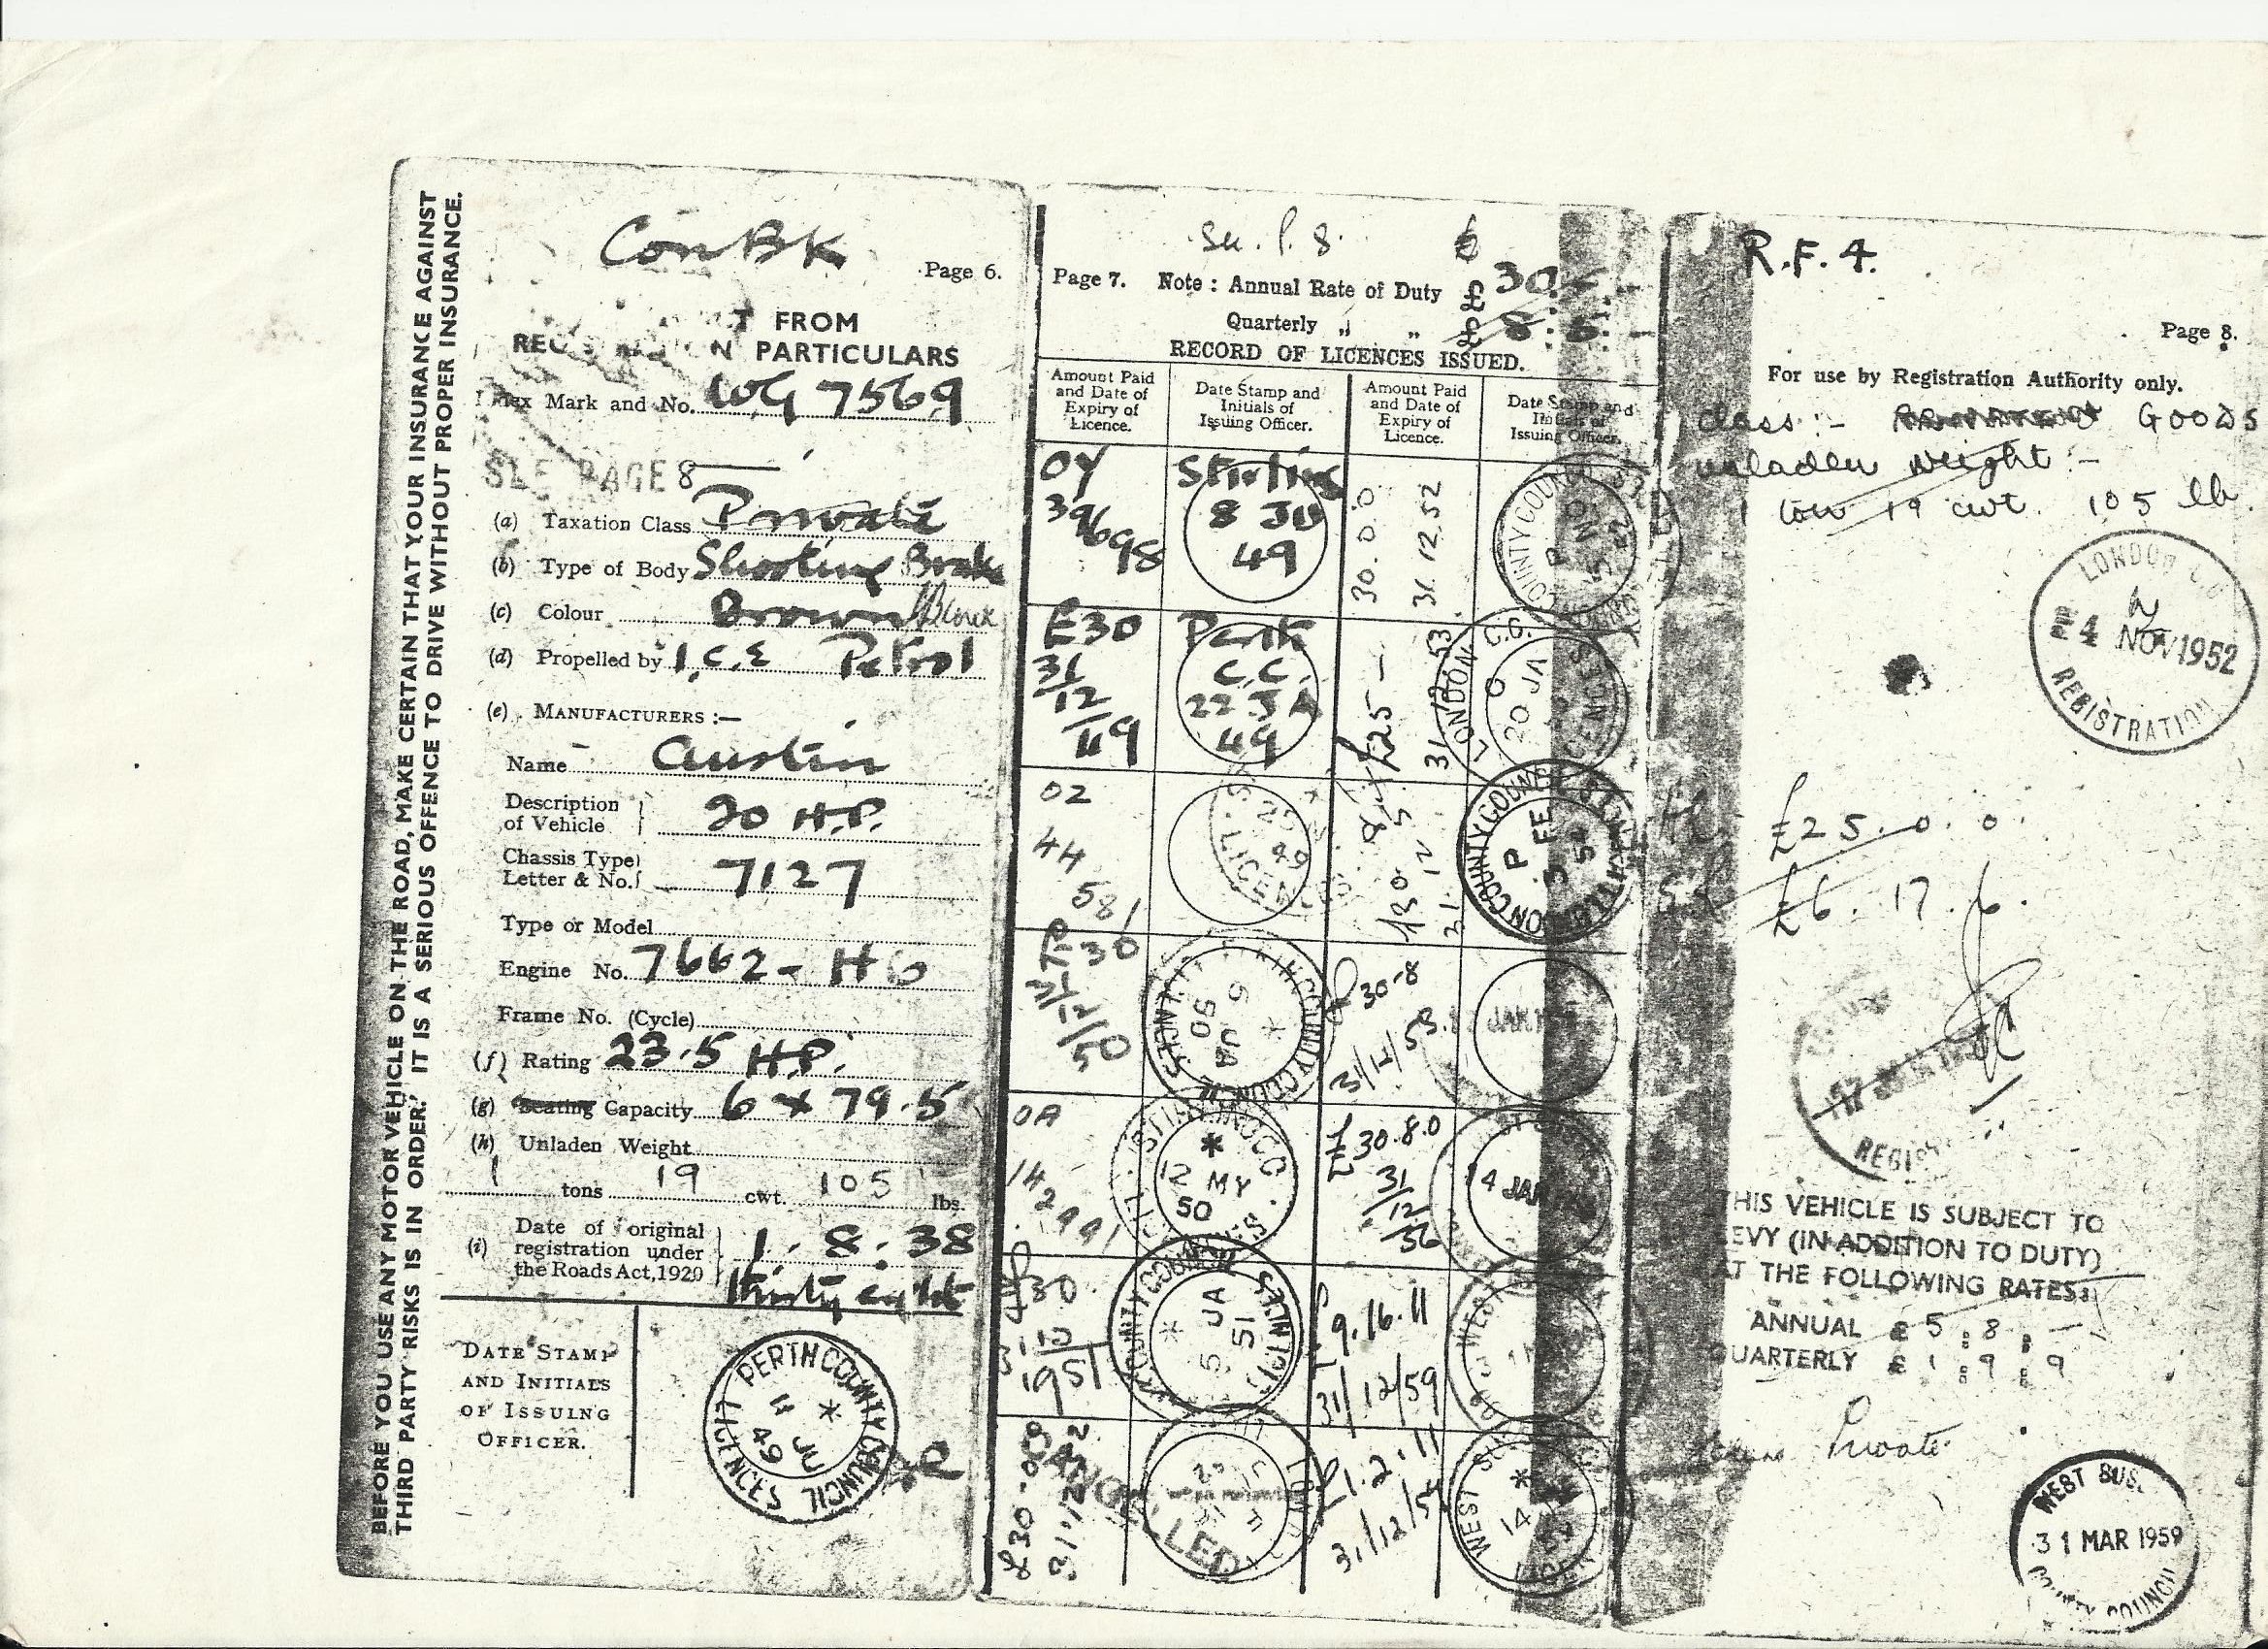 BEFORE YOU USE ANY MOTOR VEHICLE ON THE ROAD, MAKE CERTAIN THAT YOUR INSURANCE AGAINST
THIRD PARTY RISKS IS IN ORDER. IT IS A SERIOUS OFFENCE TO DRIVE WITHOUT PROPER INSURANCE.
Con BK
Page 6.
FROM
PARTICULARS
Mark and No. WG 7569
SEE PAGE 8
(a) Taxation Class Private
(b) Type of Body Shooting Brake
(c) Colour Brown
(d) Propelled by I.C.E Petrol
(e) MANUFACTURERS :—
Name Austin
Description of Vehicle 20 H.P.
Chassis Type Letter & No. 7127
Type or Model
Engine No. 7662 - H
Frame No. (Cycle)
(f) Rating 23.5 H.P.
(g) Seating Capacity 6 x 79.5
(h) Unladen Weight
1 tons 19 cwt. 105 lbs.
(i) Date of original registration under the Roads Act, 1920 1.8.38
thirty eight
DATE STAMP
AND INITIALS
OF ISSUING
OFFICER.
PERTH COUNTY COUNCIL
11 JU 49
LICENCES
Page 7. Note : Annual Rate of Duty £ 30
Quarterly „ „ £ 8
RECORD OF LICENCES ISSUED.
Amount Paid and Date of Expiry of Licence.
Date Stamp and Initials of Issuing Officer.
Amount Paid and Date of Expiry of Licence.
Date Stamp and Initials of Issuing Officer.
OY
Stirling
8 JU
49
30.0.0
31.12.52
COUNTY COUNCIL
£30
31/12/49
Perth
C.C.
22 JA
49
£25 -
LONDON C.C.
20 JA
LICENCES
02
44
581
LICENCES
49
COUNTY COUNCIL
FE
54
30
31/12/50
COUNTY COUNCIL
JA
50
£30-8
JAN
OA
142991
12 MY
50
£30.8.0
31/12/56
4 JAN
30
31.12
1951
COUNTY COUNCIL
5 JA
51
9.16.11
31/12/59
WEST
£30-0-0
CANCELLED
1.2.11
31/12/59
WEST
14
R.F.4.
Page 8.
For use by Registration Authority only.
Class :- GOODS
unladen weight :-
1 ton 19 cwt. 105 lb.
LONDON C.C.
4 NOV 1952
REGISTRATION
£25.0.0.
£6.17.6.
THIS VEHICLE IS SUBJECT TO
LEVY (IN ADDITION TO DUTY)
AT THE FOLLOWING RATES:
ANNUAL £5:8:—
QUARTERLY £1:9:9
Private
WEST SUS.
31 MAR 1959
COUNTY COUNCIL